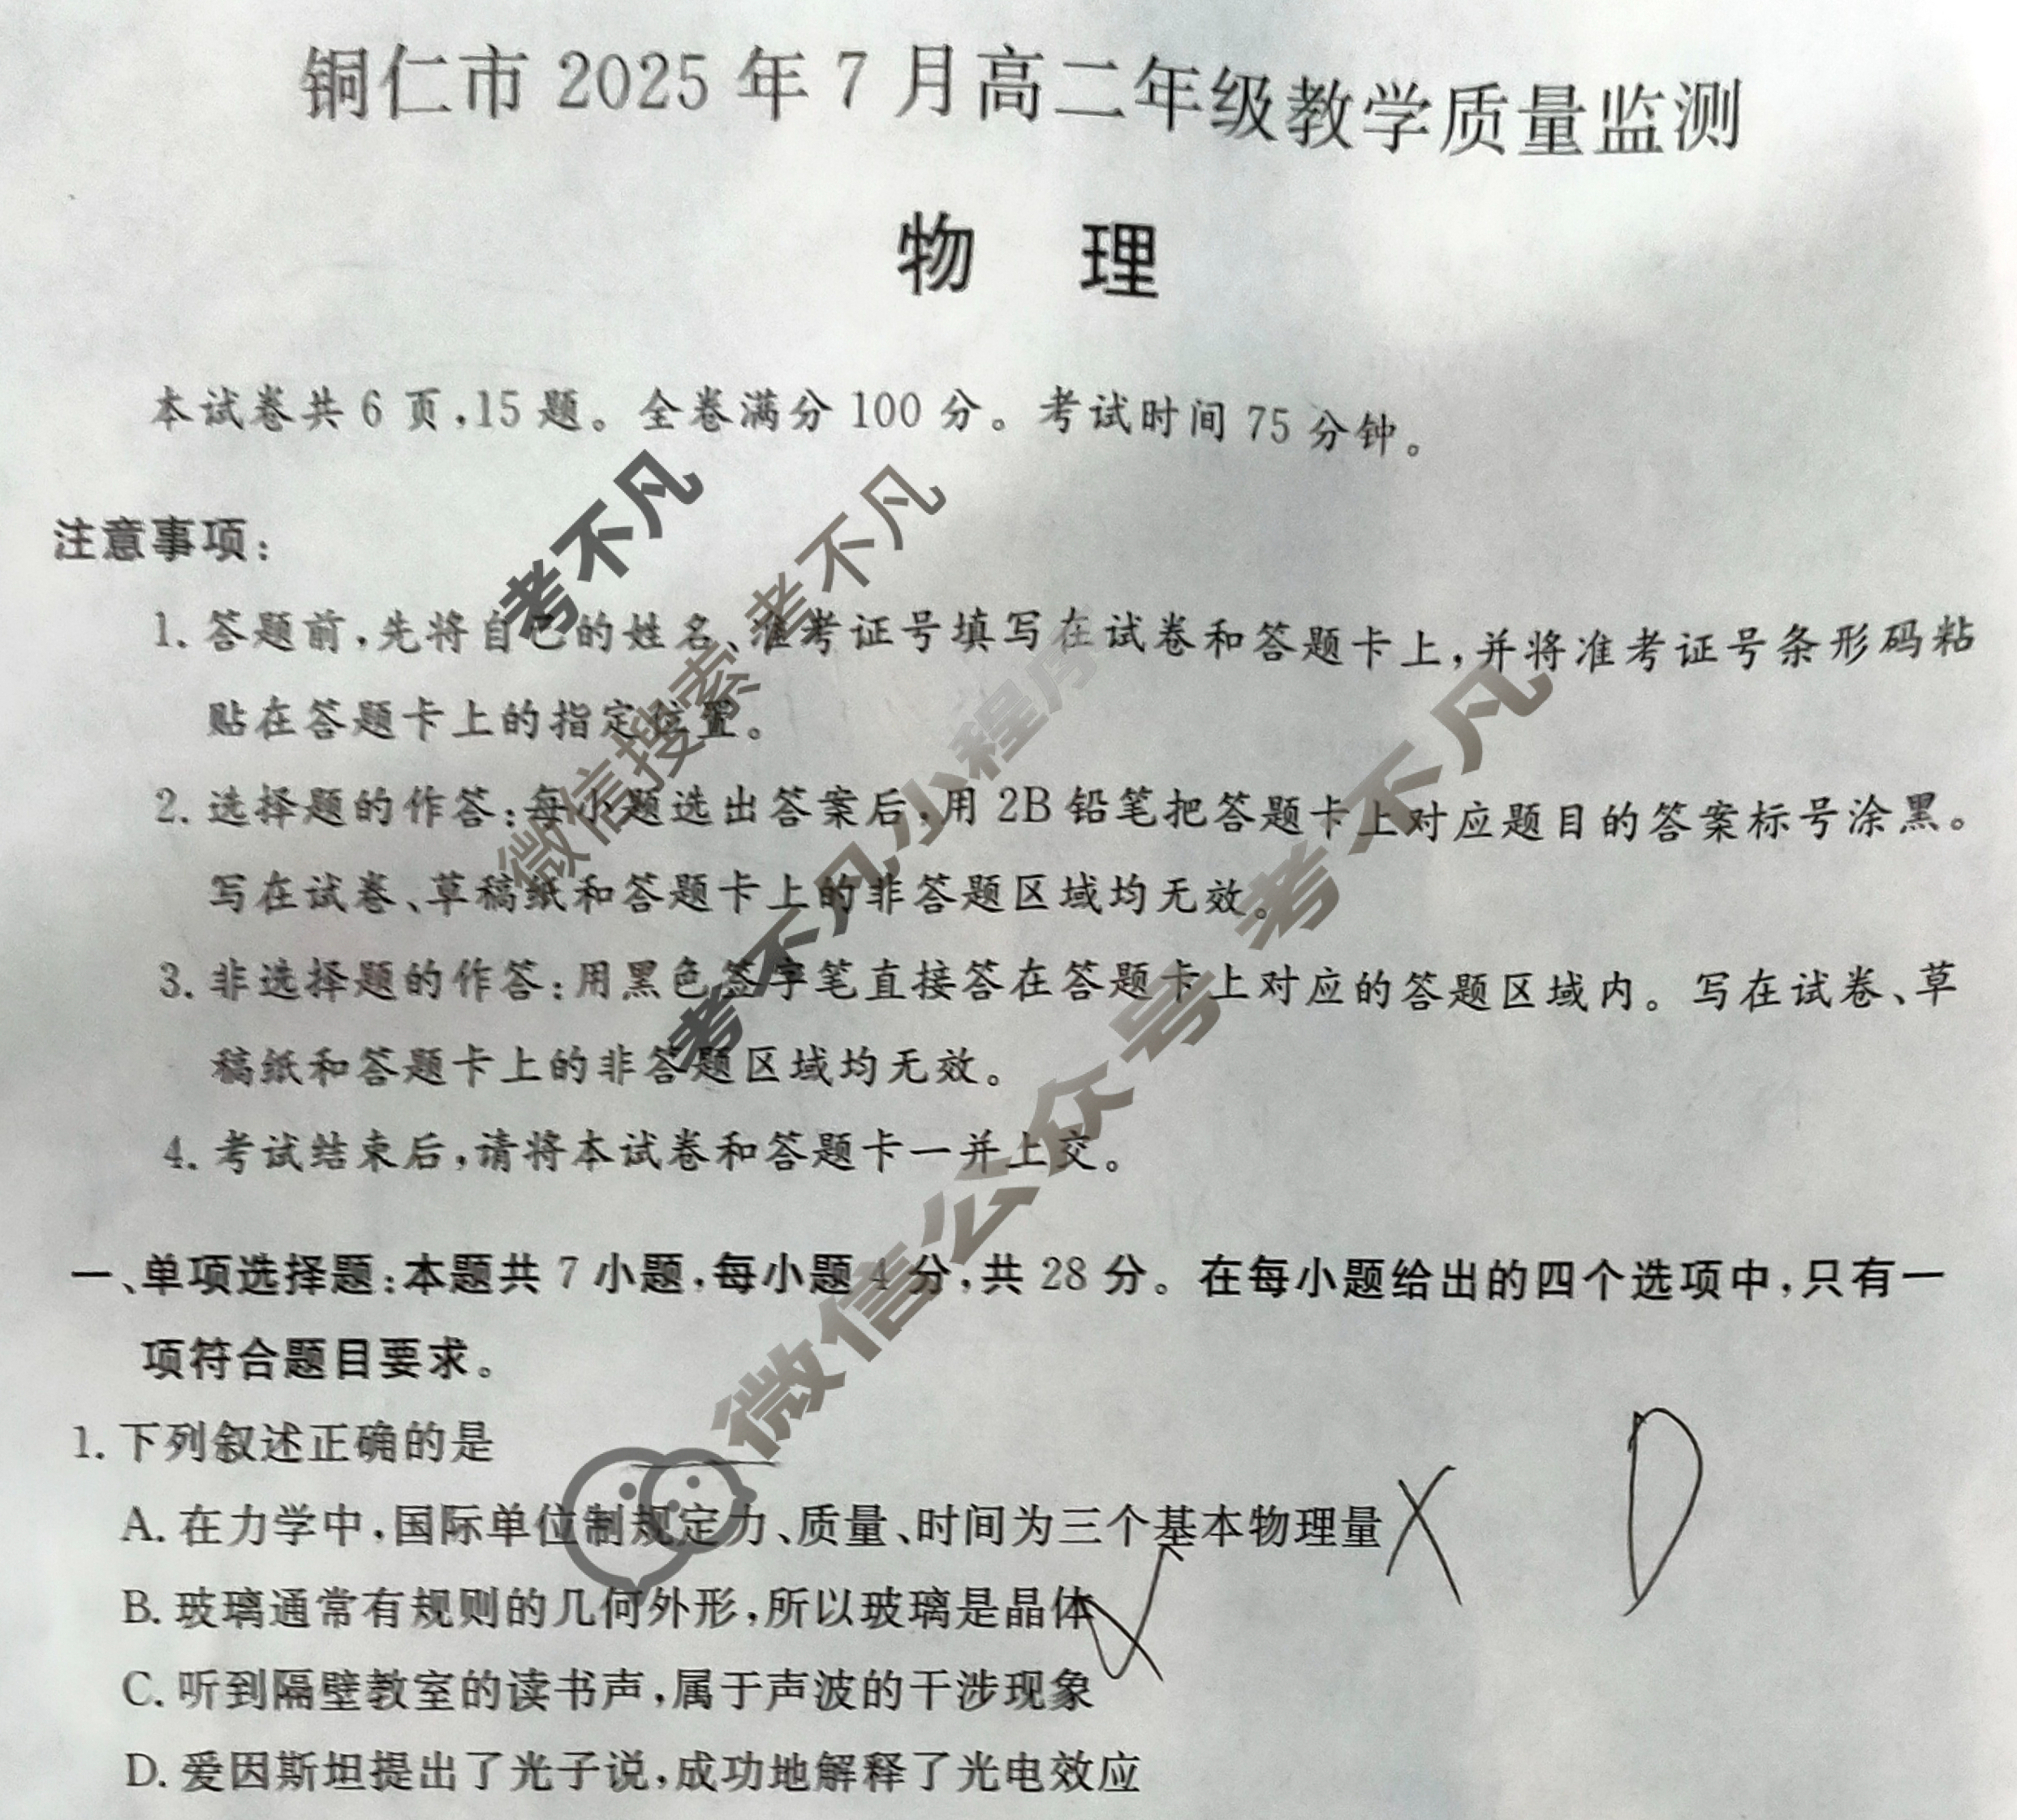 铜仁市 2025 年 7 月高二年级教学质量监测
物 理
本试卷共 6 页,15 题。全卷满分 100 分。考试时间 75 分钟。
注意事项:
1. 答题前,先将自己的姓名、准考证号填写在试卷和答题卡上,并将准考证号条形码粘
贴在答题卡上的指定位置。
2. 选择题的作答:每小题选出答案后,用 2B 铅笔把答题卡上对应题目的答案标号涂黑。
写在试卷、草稿纸和答题卡上的非答题区域均无效。
3. 非选择题的作答:用黑色签字笔直接答在答题卡上对应的答题区域内。写在试卷、草
稿纸和答题卡上的非答题区域均无效。
4. 考试结束后,请将本试卷和答题卡一并上交。
一、单项选择题:本题共 7 小题,每小题 4 分,共 28 分。在每小题给出的四个选项中,只有一
项符合题目要求。
1. 下列叙述正确的是
D
A. 在力学中,国际单位制规定力、质量、时间为三个基本物理量
B. 玻璃通常有规则的几何外形,所以玻璃是晶体
C. 听到隔壁教室的读书声,属于声波的干涉现象
D. 爱因斯坦提出了光子说,成功地解释了光电效应
考不凡
微信搜索 考不凡
考不凡小程序
微信公众号 考不凡